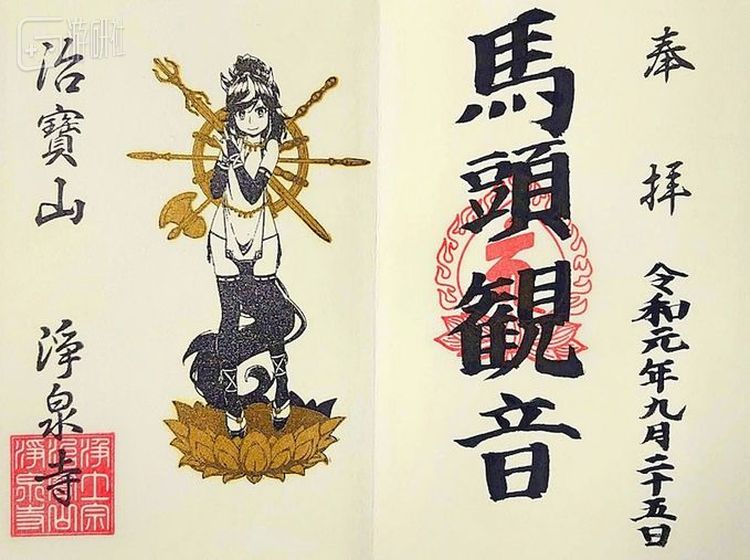 奉拝
令和元年九月二十五日
馬頭観音
治寶山
淨泉寺
淨土宗
淨泉寺
游研社